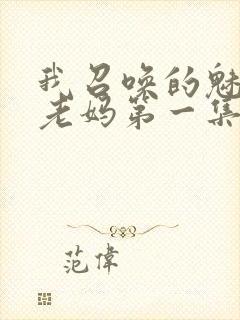 我召唤的魅
老妈第一集
范偉